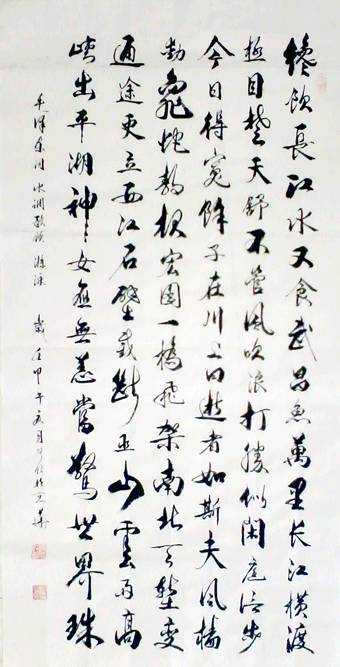 纔飲長江水又食武昌魚萬里长江橫渡
極目楚天舒不管風吹浪打勝似閑庭信步
今日得寬餘子在川上曰逝者如斯夫風檣
動龜蛇静起宏图一橋飛架南北天塹變
通途更立西江石壁截斷巫山雲雨高
峽出平湖神女應無恙當驚世界珠
毛澤東詞水調歌頭游泳 歲在甲午